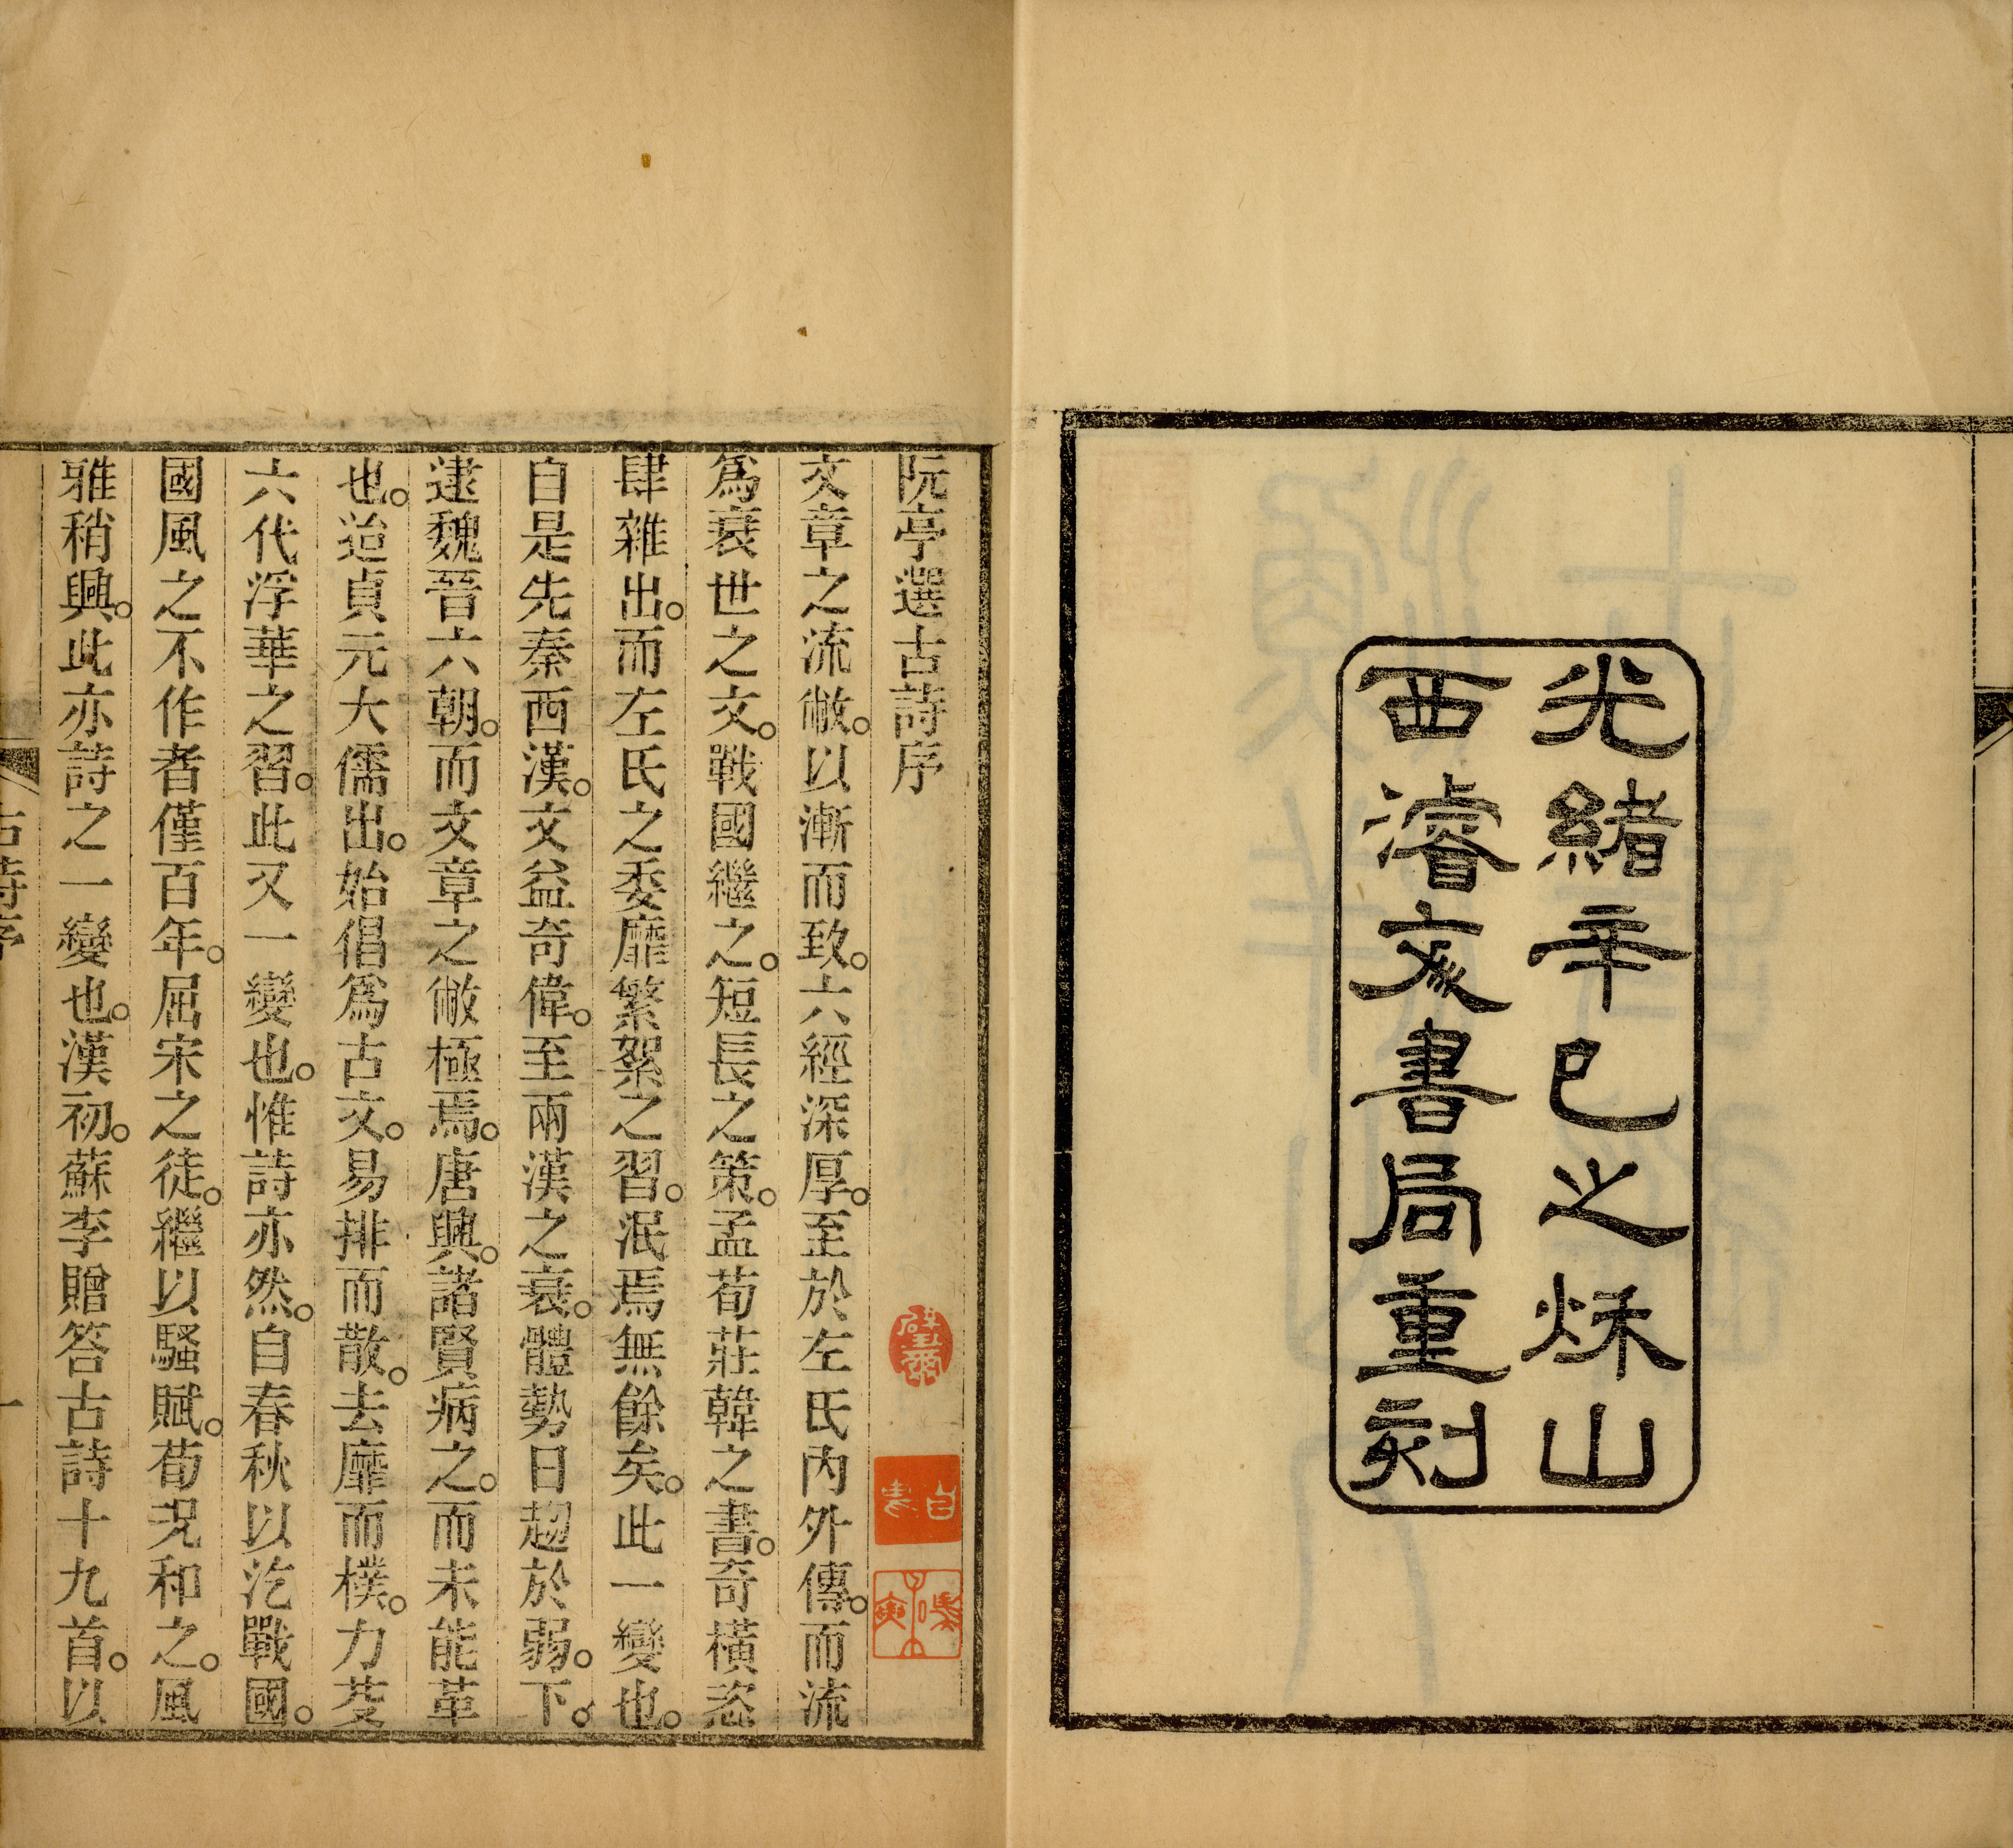 光緒辛巳之秌山
西濬文書局重刻
阮亭選古詩序
文章之流敝。以漸而致。六經深厚。至於左氏內外傳。而流
爲衰世之文。戰國繼之。短長之策。孟荀莊韓之書。奇橫恣
肆雜出。而左氏之委靡繁絮之習。泯焉無餘矣。此一變也。
自是先秦西漢。文益奇偉。至兩漢之衰。體勢日趨於弱。下。
逮魏晉六朝。而文章之敝極焉。唐興。諸賢病之。而未能革
也。迨貞元大儒出。始倡爲古文。易排而散。去靡而樸。力芟
六代浮華之習。此又一變也。惟詩亦然。自春秋以迄戰國。
國風之不作者僅百年。屈宋之徒。繼以騷賦。荀況和之。風
雅稍興。此亦詩之一變也。漢初。蘇李贈答古詩十九首。以
古詩序
一